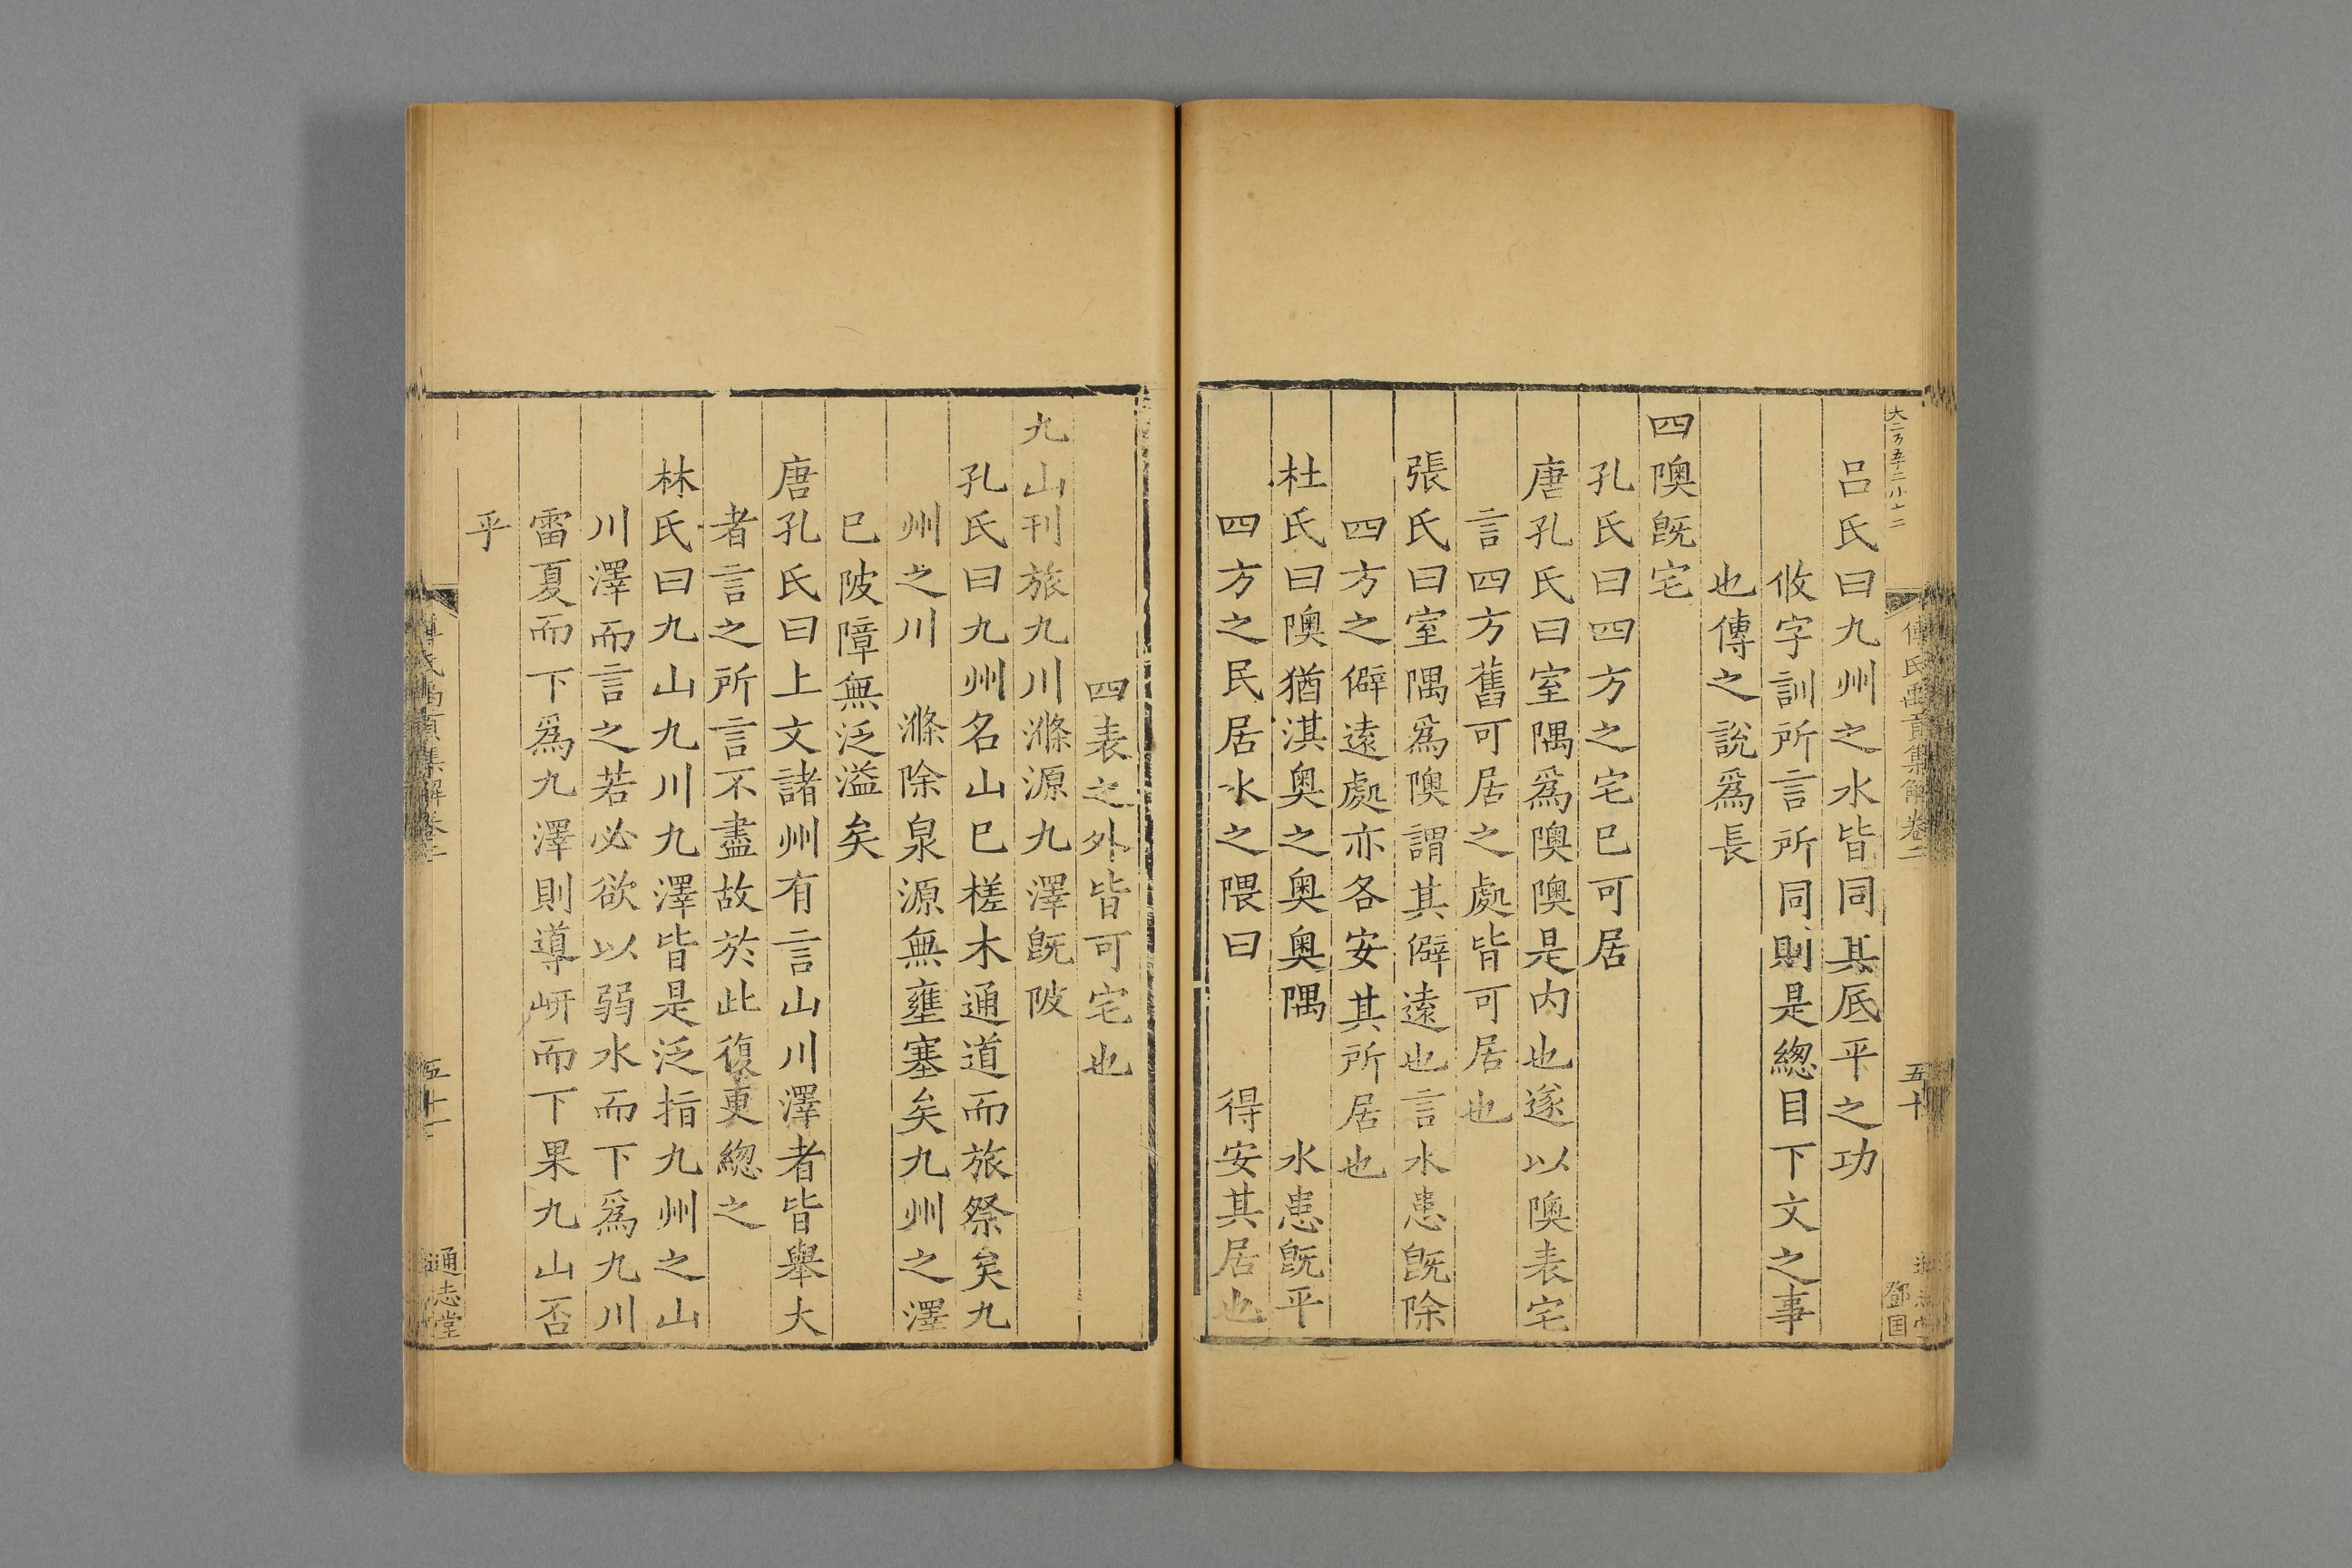 大二百五十二小十二
傅氏禹貢集解卷二
五十
鄧国
呂氏曰九州之水皆同其底平之功
攸字訓所言所同則是總目下文之事
也傳之說爲長
四隩旣宅
孔氏曰四方之宅巳可居
唐孔氏曰室隅爲隩隩是内也遂以隩表宅
言四方舊可居之處皆可居也
張氏曰室隅爲隩謂其僻遠也言水患旣除
四方之僻遠處亦各安其所居也
杜氏曰隩猶淇奥之奥奥隅 水患旣平
四方之民居水之隈曰 得安其居也
四表之外皆可宅也
九山刊旅九川滌源九澤旣陂
孔氏曰九州名山巳槎木通道而旅祭矣九
州之川 滌除泉源無壅塞矣九州之澤
巳陂障無泛溢矣
唐孔氏曰上文諸州有言山川澤者皆舉大
者言之所言不盡故於此復更總之
林氏曰九山九川九澤皆是泛指九州之山
川澤而言之若必欲以弱水而下爲九川
雷夏而下爲九澤則導岍而下果九山否
乎
傅氏禹貢集解卷二
五十一
通志堂